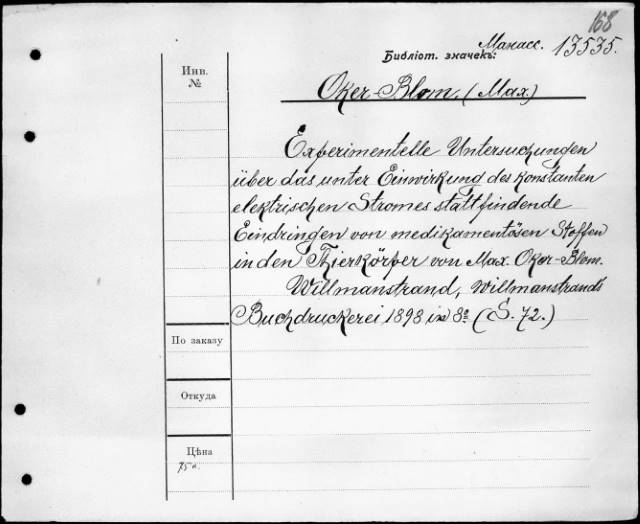 168
Библіот. значекъ: Манасс. 13535.
Инв.
№
Oker-Blom. (Max.)
Experimentelle Untersuchungen
über das unter Einwirkung des konstanten
elektrischen Stromes stattfindende
Eindringen von medikamentösen Stoffen
in den Thierkörper von Max. Oker-Blom.
Willmanstrand, Willmanstrands
Buchdruckerei 1898 in 8º (S. 72.)
По заказу
Откуда
Цѣна
75 к.